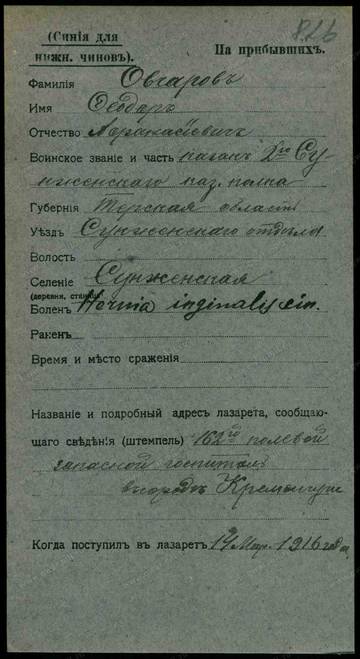 826
(Синія для
нижн. чиновъ).
На прибывшихъ.
Фамилія Овчаровъ
Имя Феодоръ
Отчество Афанасіевичъ
Воинское званіе и часть казакъ 2го Сун-
женскаго каз. полка
Губернія Терская область
Уѣздъ Сунженскаго отдѣла
Волость
Селеніе Сунженская
(деревня, станица)
Боленъ Hernia inginalis sin.
Раненъ
Время и мѣсто сраженія
Названіе и подробный адресъ лазарета, сообщаю-
щаго свѣдѣнія (штемпель) 162го полевой
запасной госпиталь
въ городѣ Кременчугѣ
Когда поступилъ въ лазаретъ 14 Мар. 1916 года